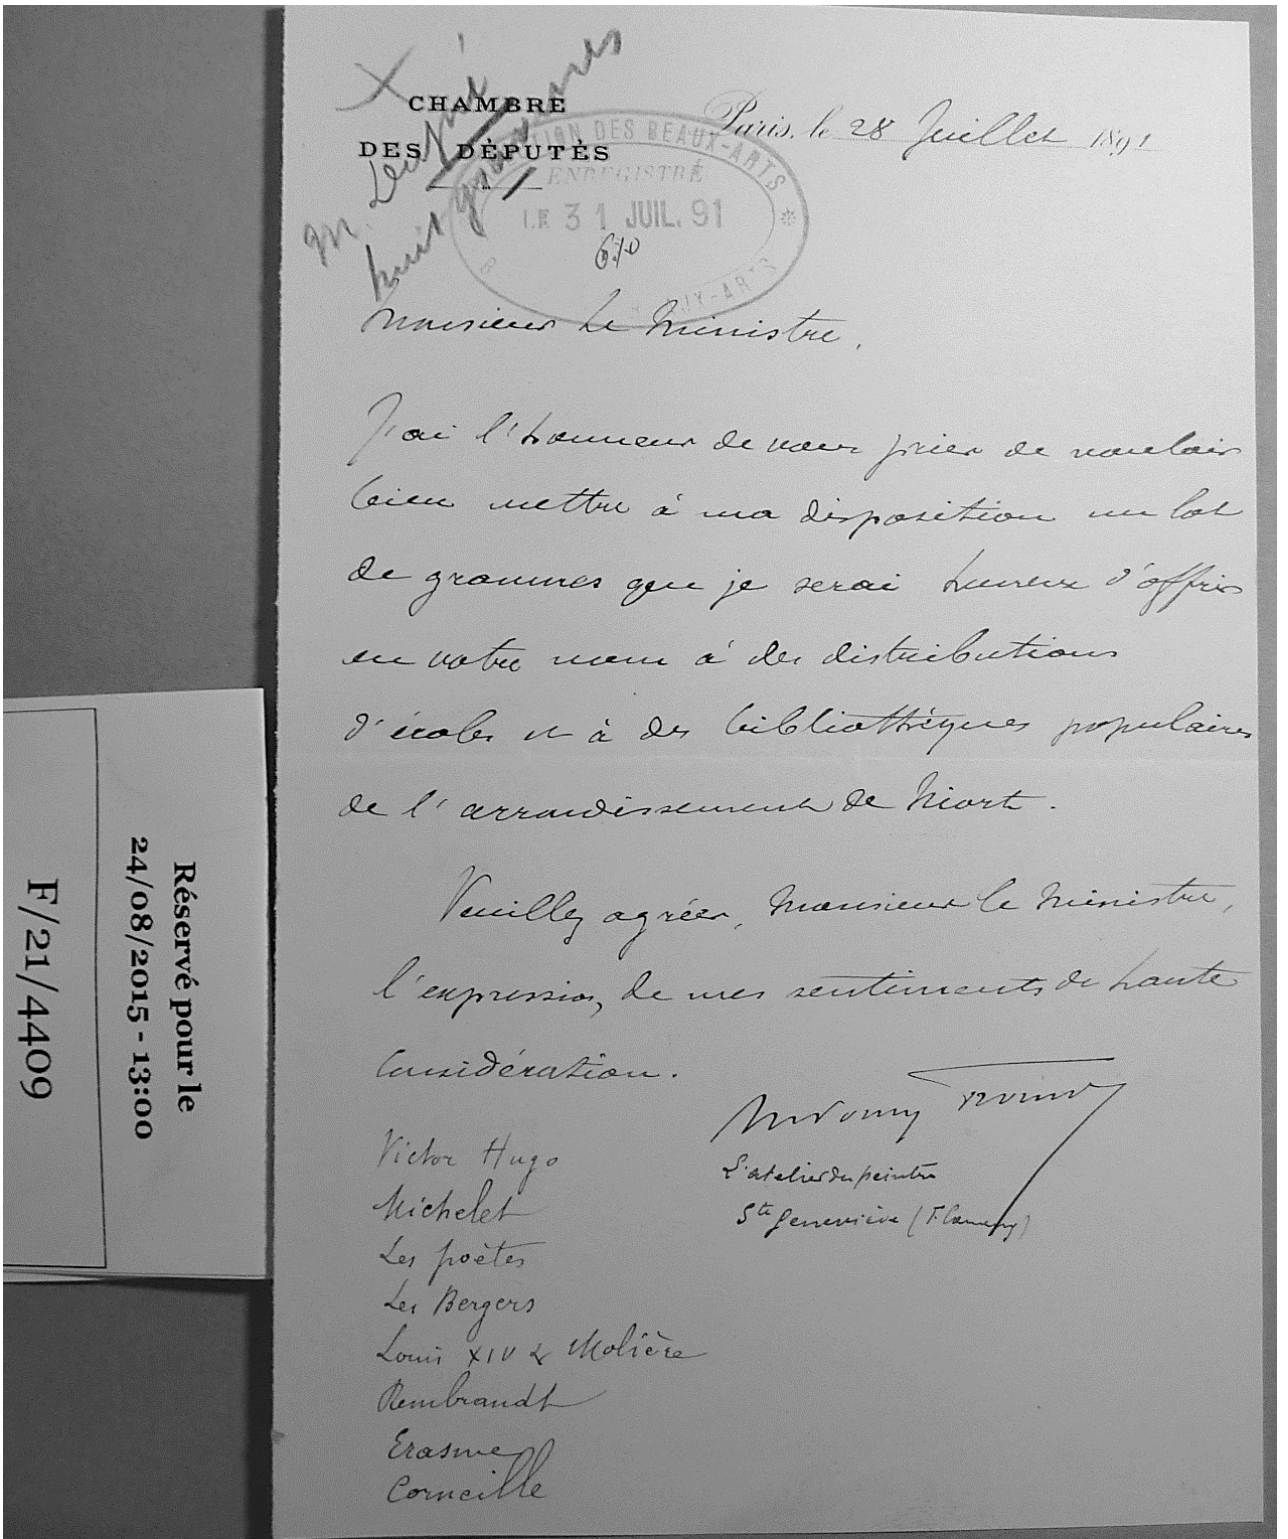 CHAMBRE
DES DÉPUTÉS
M. Dupré
huit gravures
Paris, le 28 Juillet 1891
DES BEAUX-ARTS
ENREGISTRÉ
LE 31 JUIL. 91
Monsieur le Ministre,
J'ai l'honneur de vous prier de vouloir
bien mettre à ma disposition un lot
de gravures que je serai heureux d'offrir
en votre nom à des distributions
d'écoles et à des bibliothèques populaires
de l'arrondissement de Niort.
Veuillez agréer, Monsieur le Ministre,
l'expression, de mes sentiments de haute
considération.
L'atelier du peintre
Ste Geneviève (Flameng)
Victor Hugo
Michelet
Les poètes
Les Bergers
Louis XIV & Molière
Rembrandt
Erasme
Corneille
Réservé pour le
24/08/2015 - 13:00
F/21/4409